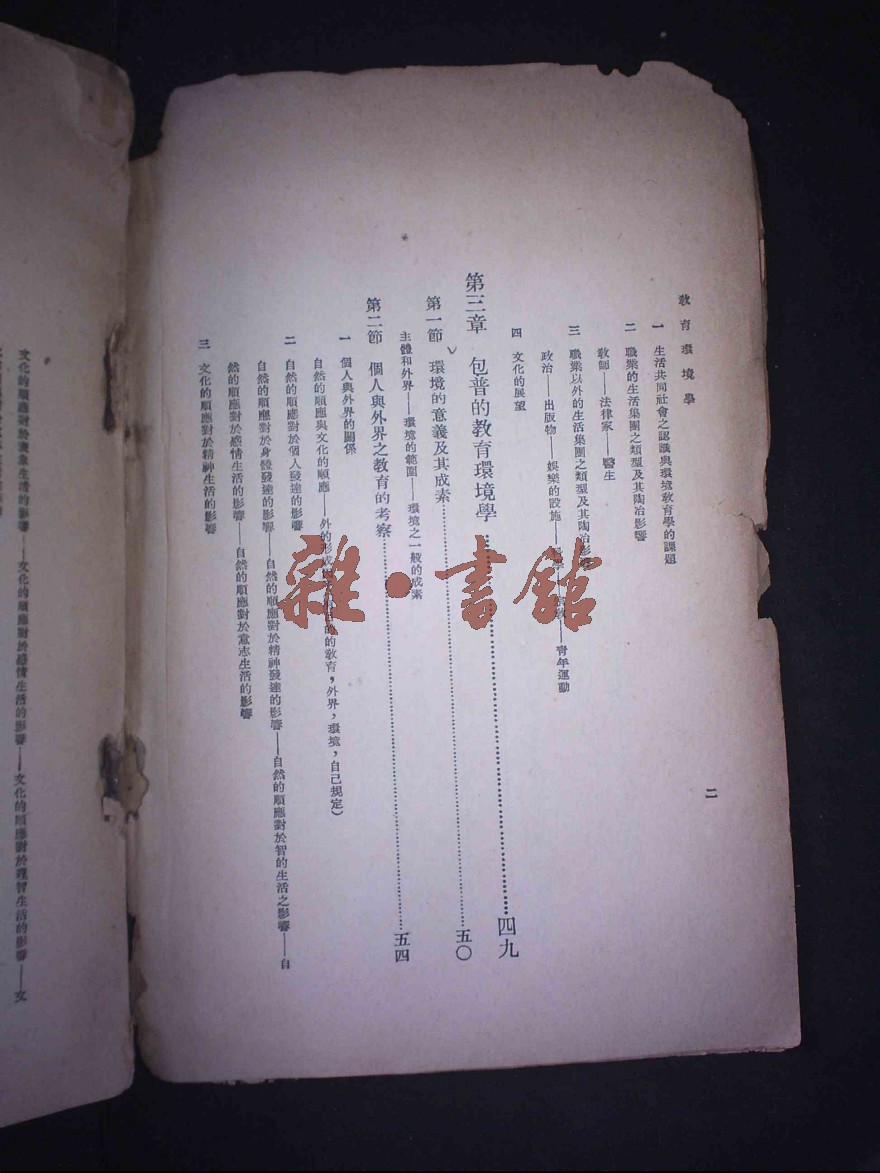 教育環境學
二
一 生活共同社會之認識與環境教育學的課題
二 職業的生活集團之類型及其陶冶影響
教師——法律家——醫生
三 職業以外的生活集團之類型及其陶冶影響
政治——出版物——娛樂的設施——青年運動
四 文化的展望
第三章 包普的教育環境學……四九
第一節 環境的意義及其成素……五〇
主體和外界——環境的範圍——環境之一般的成素
第二節 個人與外界之教育的考察……五四
一 個人與外界的關係
自然的順應與文化的順應——外的形成的教育，外界，環境，自己規定）
二 自然的順應對於個人發達的影響
自然的順應對於身體發達的影響——自然的順應對於精神發達的影響——自然的順應對於智的生活之影響——自
然的順應對於感情生活的影響——自然的順應對於意志生活的影響
三 文化的順應對於精神生活的影響
文化的順應對於表象生活的影響——文化的順應對於感情生活的影響——文化的順應對於理智生活的影響——文
雜·書館